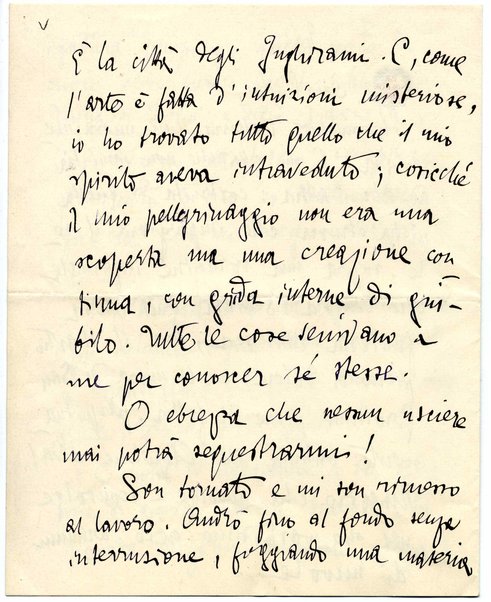 V
È la città degli Inghirami. E, come
l'arte è fatta d'intuizioni misteriose,
io ho trovato tutto quello che il mio
spirito aveva intraveduto; cosicché
il mio pellegrinaggio non era una
scoperta ma una creazione con
tinua, con grida interne di giu-
bilo. Tutte le cose venivano a
me per conoscer sé stesse.
O ebrezza che nessun usciere
mai potrà sequestrarmi!
Son tornato e mi son rimesso
al lavoro. Andrò fino al fondo senza
interruzione, foggiando una materia